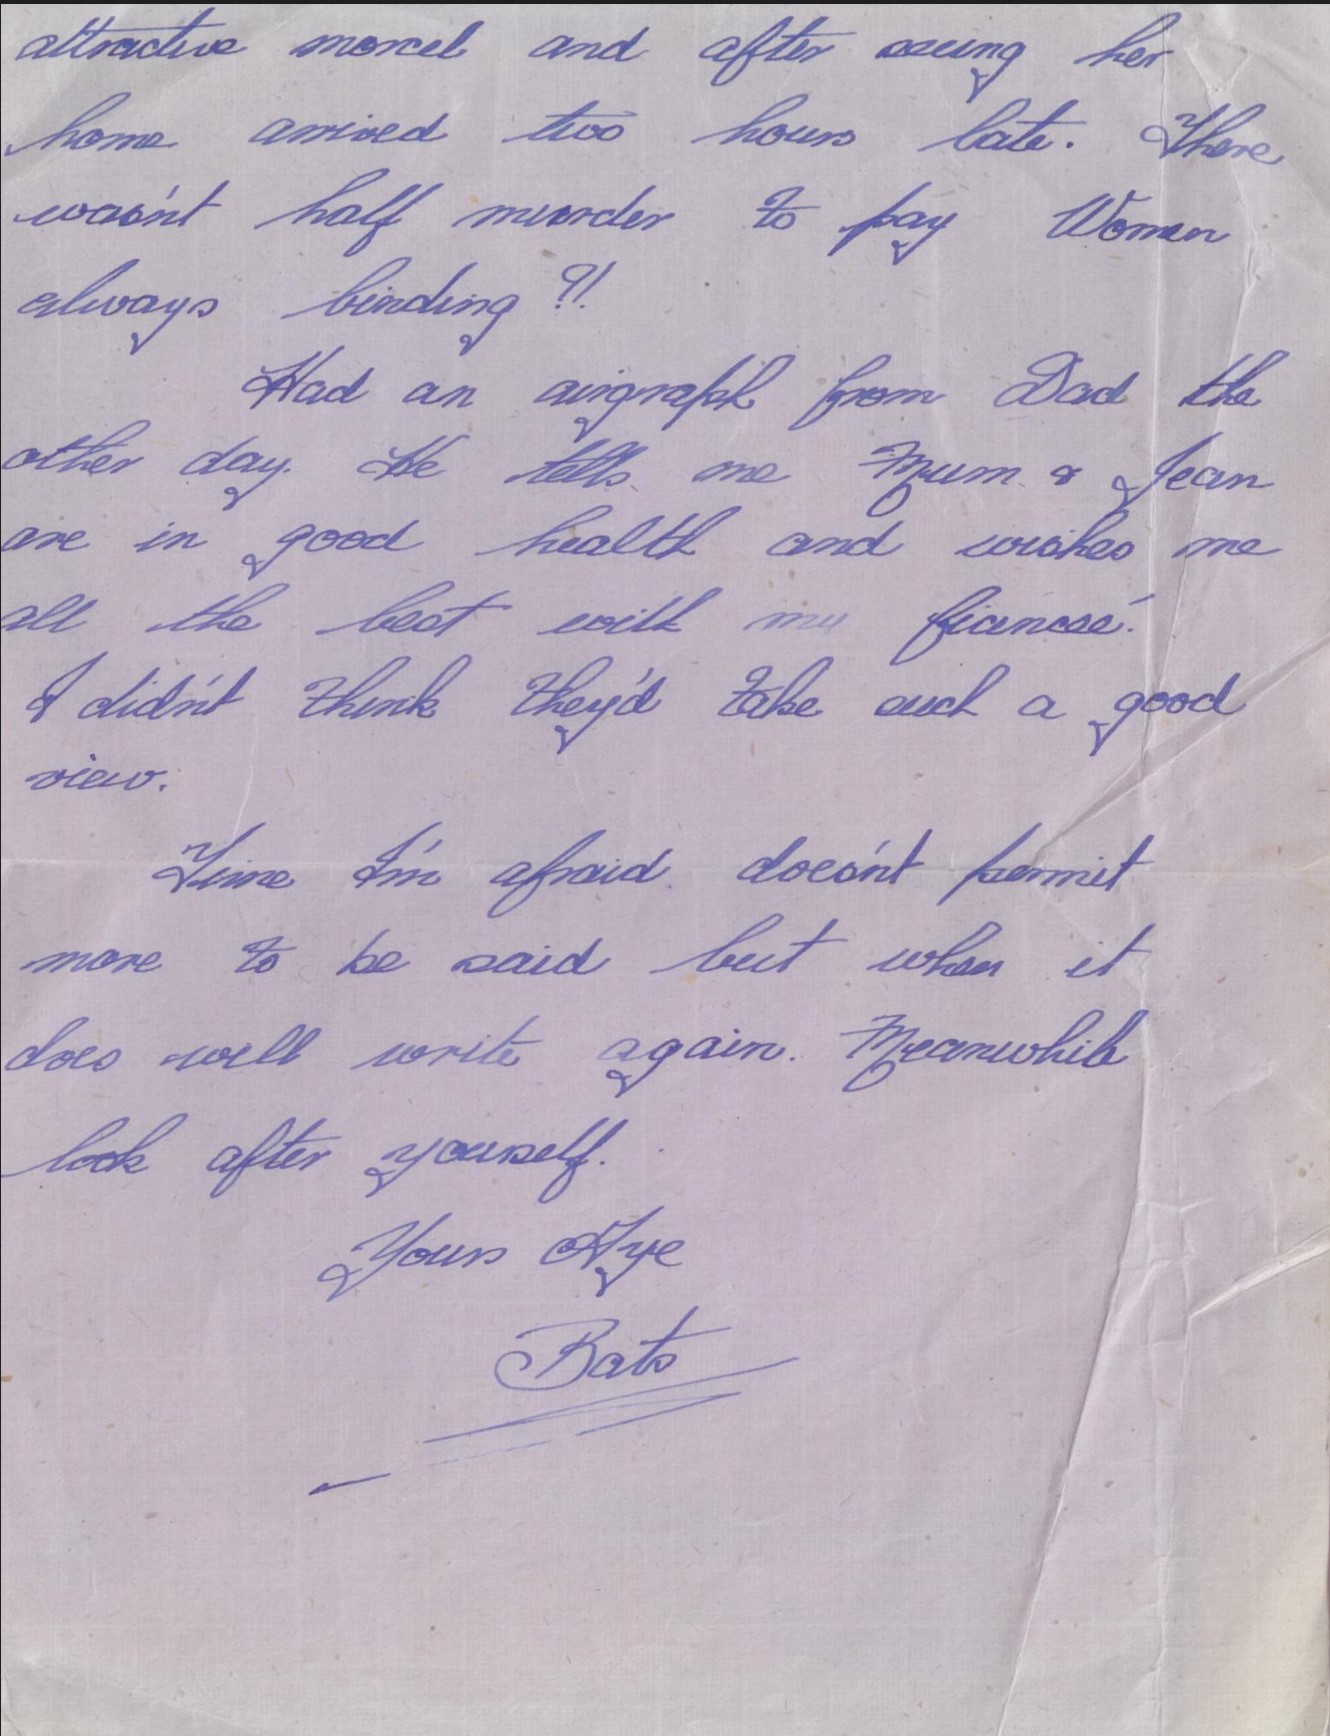 attractive morcel and after seeing her
home arrived two hours late. There
wasn't half murder to pay Women
always binding ?!
Had an airgraph from Dad the
other day. He tells me Mum & Jean
are in good health and wishes me
all the best with my fiancée.
I didn't think they'd take such a good
view.
Time I'm afraid doesn't permit
more to be said but when it
does will write again. Meanwhile
look after yourself.
Yours Aye
Bats